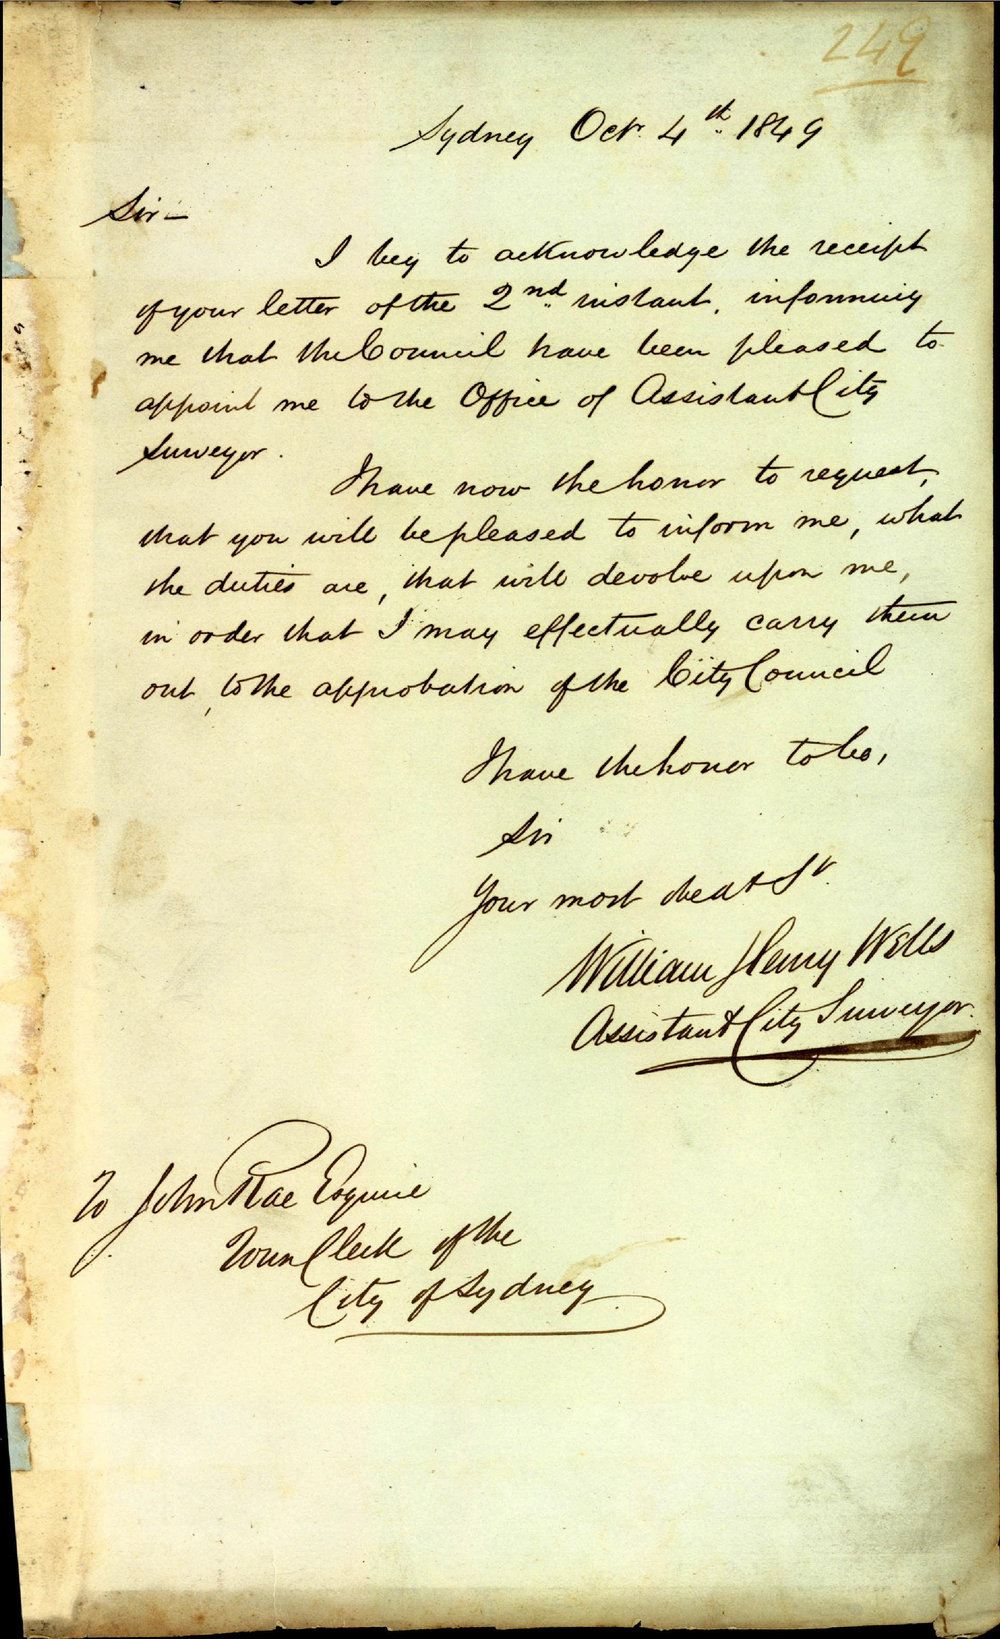 249
Sydney Octr 4th 1849
Sir –
I beg to acknowledge the receipt
of your letter of the 2nd instant, informing
me that the Council have been pleased to
appoint me to the Office of Assistant City
Surveyor.
I have now the honor to request,
that you will be pleased to inform me, what
the duties are, that will devolve upon me,
in order that I may effectually carry them
out, to the approbation of the City Council
I have the honor to be,
Sir
Your most obedt St.
William Henry Wells
Assistant City Surveyor.
To John Rae Esquire
Town Clerk of the
City of Sydney